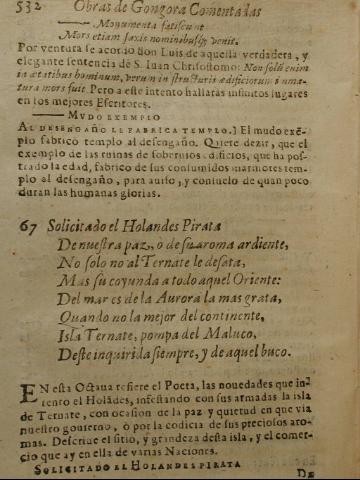 532 Obras de Gongora Comentadas
Monumenta fatiscunt
Mors etiam saxis nominibusq; venit.
Por ventura se acordo don Luis de aquella verdadera, y
elegante sentencia de S. Iuan Chrisostomo: Non solũ enim
ista ætatibus hominum, verum in structuris ædificiorum innatura
tura mors fuit. Pero a este intento hallaràs infinitos lugares
en los mejores Escritores.
MVDO EXEMPLO
AL DESENGAÑO LE FABRICA TEMPLO.] El mudo exẽ-
plo fabricò templo al desengaño. Quiere dezir, que el
exemplo de las ruinas de soberuios edificios, que ha pos-
trado la edad, fabrico de sus consumidos marmores tem-
plo al desengaño, para auiso, y consuelo de quan poco
duran las humanas glorias.
67 Solicitado el Holandes Pirata
De nuestra paz, ò de su aroma ardiente,
No solo no al Ternate le desata,
Mas su coyunda a todo aquel Oriente:
Del mar es de la Aurora la mas grata,
Quando no la mejor del continente,
Isla Ternate, pompa del Maluco,
Deste inquirida siempre, y de aquel buco.
EN esta Octaua refiere el Poeta, las nouedades que in-
tento el Holãdes, infestando con sus armadas la isla
de Ternate, con ocasion de la paz y quietud en que via
nuestro gouierno, ò por la codicia de sus preciosos aro-
mas. Descriue el sitio, y grandeza desta isla, y el comer-
cio que ay en ella de varias Naciones.
SOLICITADO EL HOLANDES PIRATA
DE